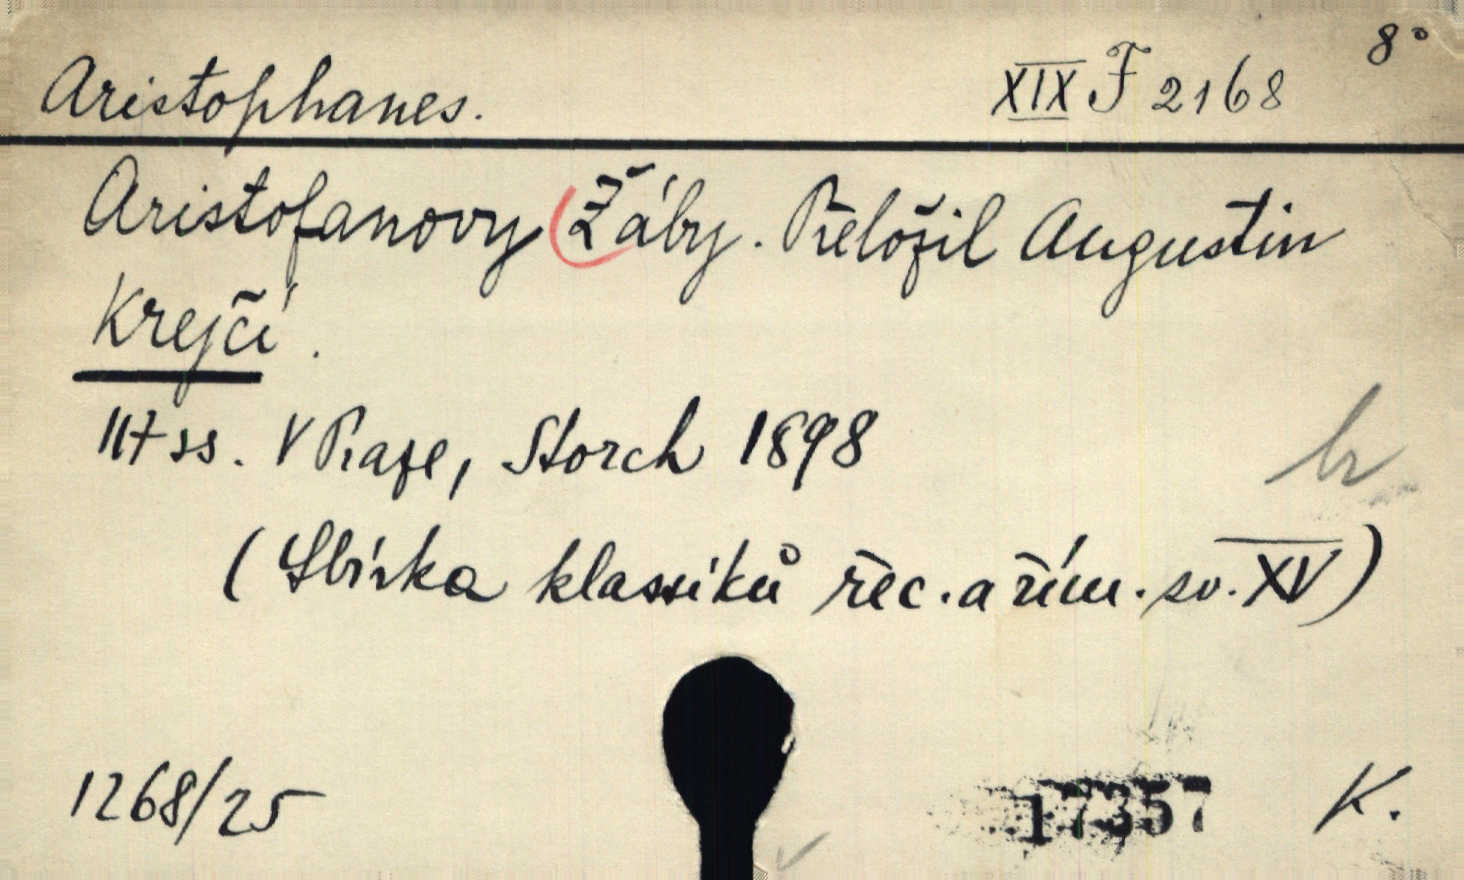 Aristophanes. XIX F 2168 8°
Aristofanovy Žáby. Přeložil Augustin
Krejčí.
117 ss. V Praze, Storch 1898
(Sbírka klassiků řec. a řím. sv. XV)
1268/25 17357 K.